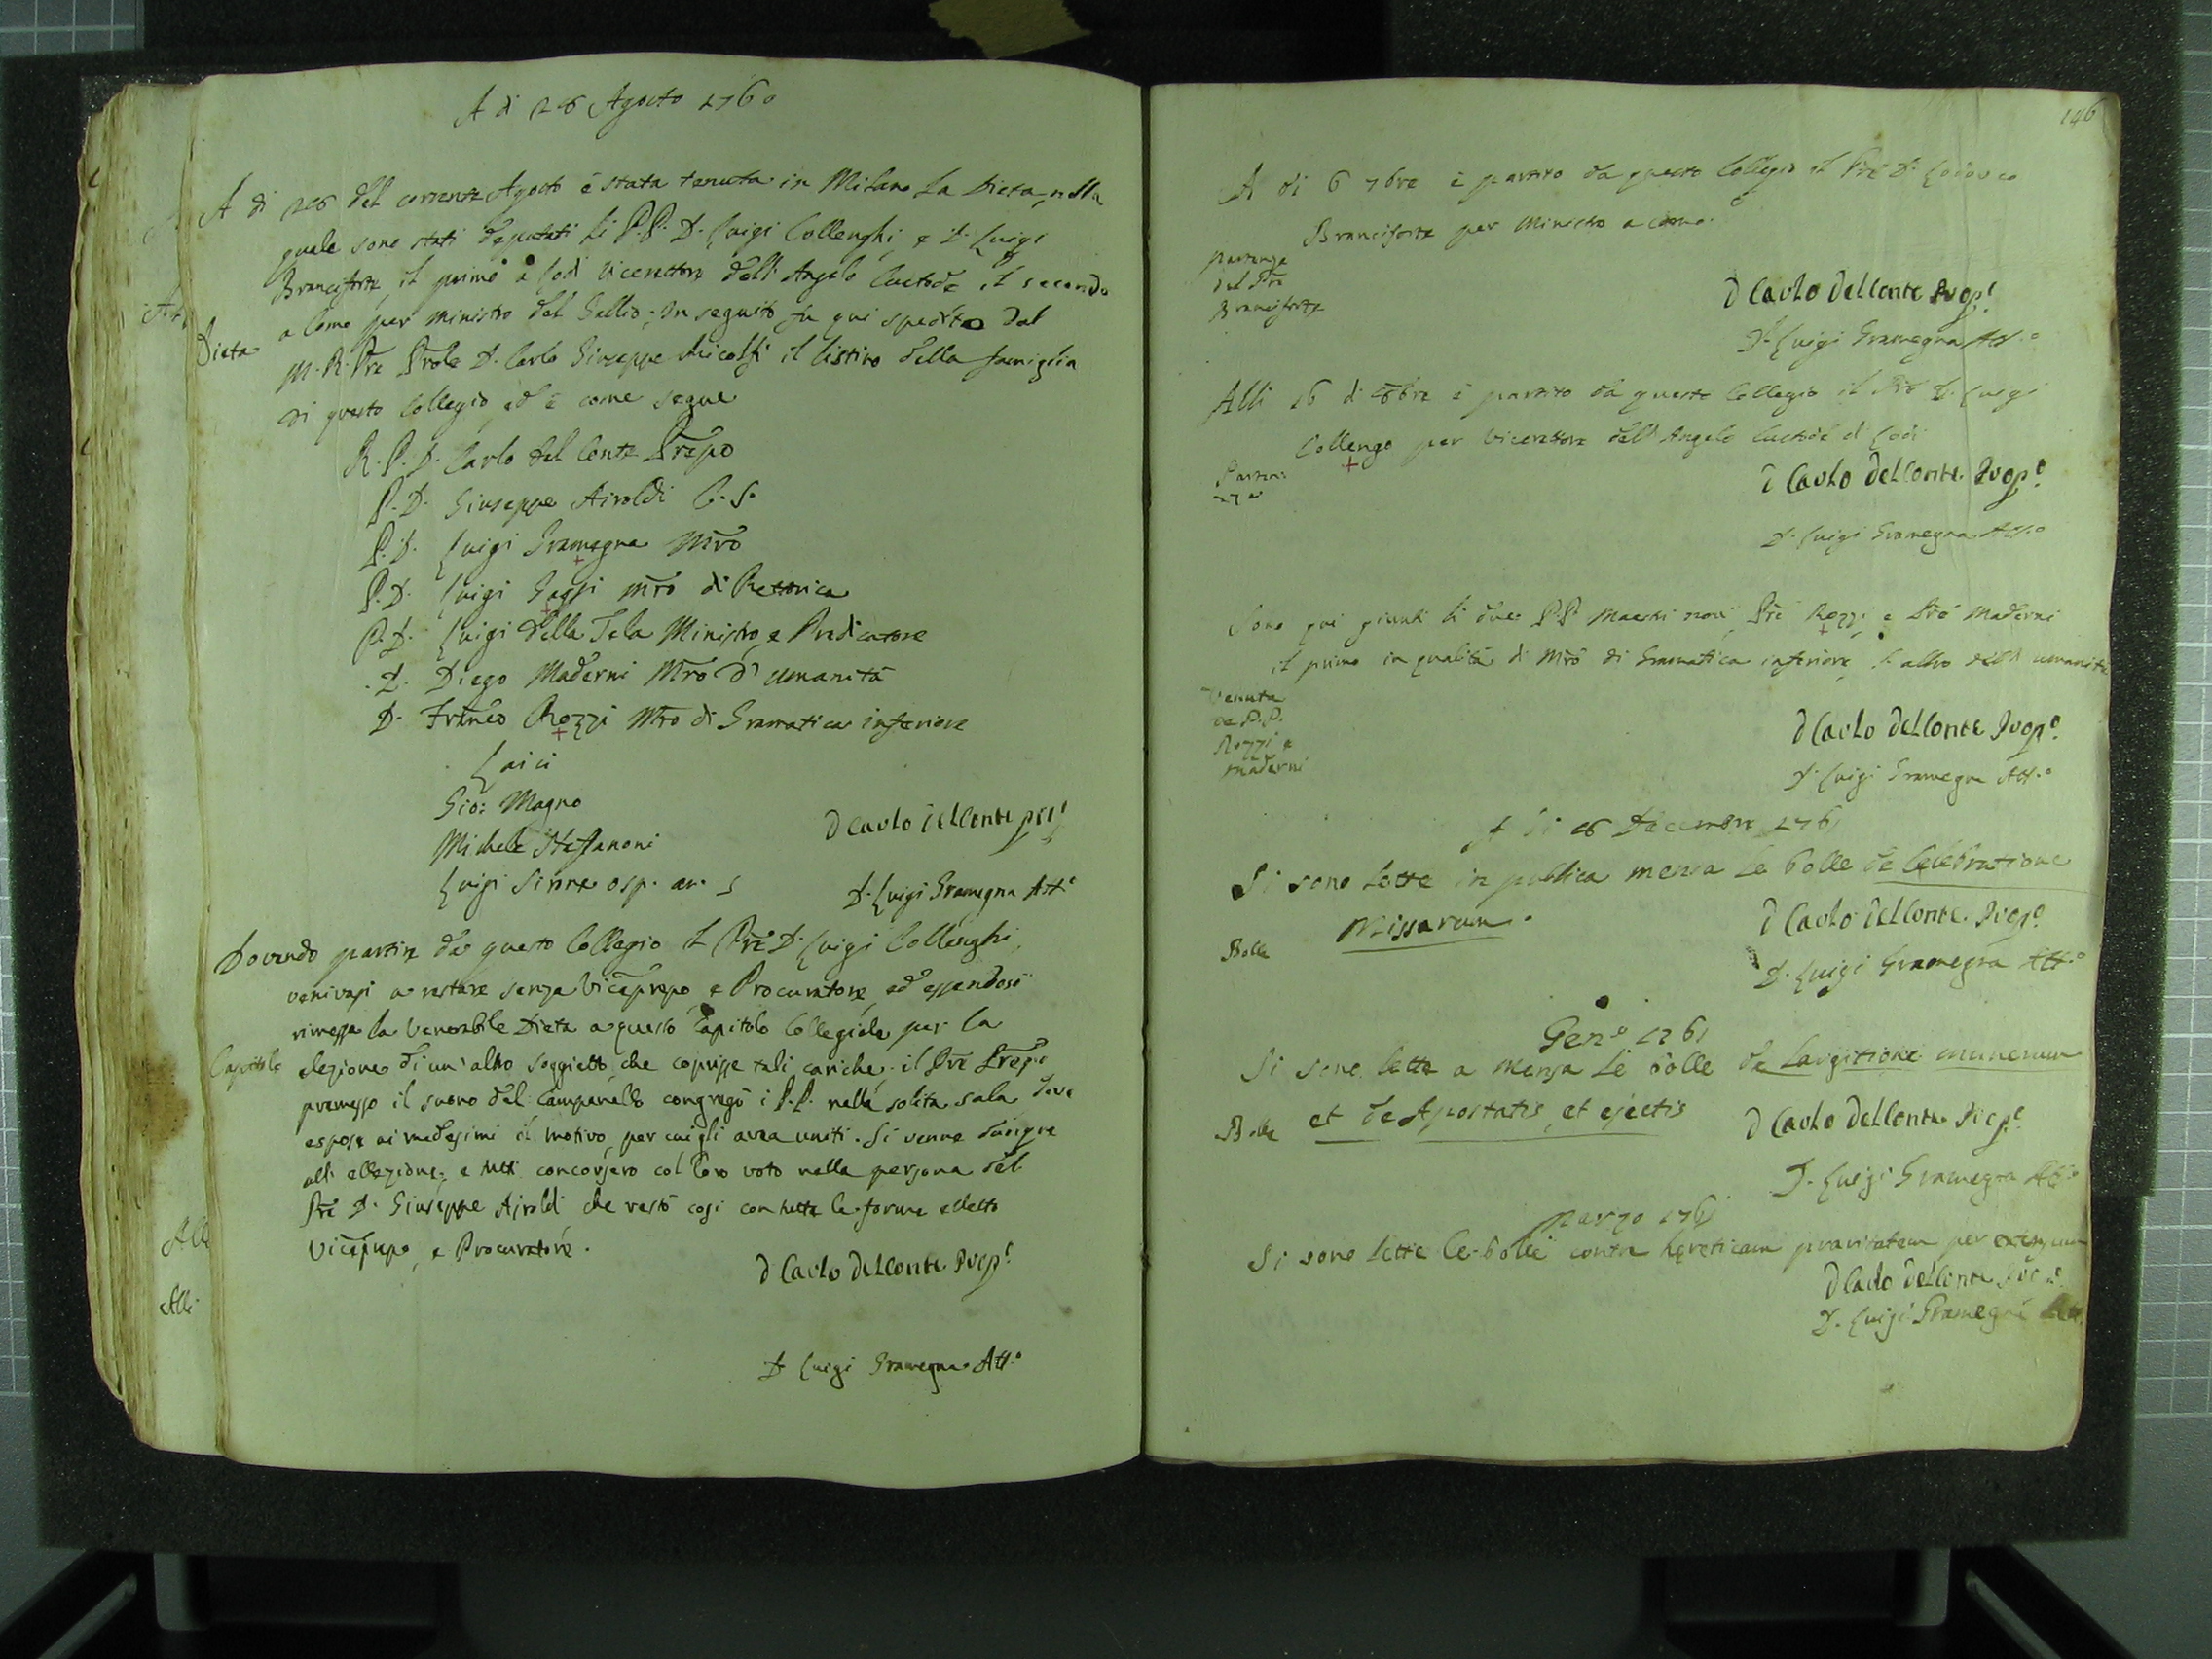 A di 28 Agosto 1760
A di 26 del corrente Agosto è stata tenuta in Milano la Dieta, nella
quale sono stati deputati li P.P. D. Luigi Collenghi, e D. Luigi
Branciforte, il primo a Lodi Vicerettore dell' Angelo Custode il secondo
a Como per ministro del Gallio; In seguito fu qui spedito dal
Dieta
M. R. Pre Prole D. Carlo Giuseppe il listino della famiglia
di questo Collegio, ed è come segue
R. P. D. Carlo del Conte Prepo
P. D. Giuseppe Airoldi C. S.
P. D. Luigi Gramegna Mro
P. D. Luigi Gaggi mro di Rettorica
P. D. Luigi della Tela Ministro, e Predicatore
D. Diego Maderni Mro d' umanità
D. Franco Rozzi Mro di Gramatica inferiore
Laici
Gio: Magno
Michele Steffanoni
D Carlo del Conte prep
Luigi Sirone osp. an. 5
D. Luigi Gramegna Att.o
Dovendo partire da questo Collegio il Pre D. Luigi Collenghi,
venivasi a restare senza Viceprepo, e Procuratore, ed essendosi
rimessa la Venerabile Dieta a questo Capitolo Collegiale per la
Capitolo
elezione di un' altro soggietto, che coprisse tali cariche, il Pre Prepo
premesso il suono del Campanello congregò i P.P. nella solita sala dove
espose ai medesimi il motivo, per cui gli avea uniti. Si venne dunque
all' ellezione, e tutti concorsero col loro voto nella persona del
Pre D. Giuseppe Airoldi che restò così con tutte le forme elletto
Viceprepo, e Procuratore.
D Carlo del Conte Prep.o
D. Luigi Gramegna Att.o
Alli
Alli
146
A di 6 7bre è partito da questo Collegio il Pre D. Lodovico
Branciforte per Ministro a Como.
Partenza
del Pre
Branciforte
D Carlo del Conte Prop.o
D. Luigi Gramegna Att.o
Alli 16 di 8bre è partito da questo Collegio il Pre D. Luigi
Collengo per Vicerettore dell' Angelo Custode di Lodi
Parten
za
D Carlo del Conte Prop.o
D. Luigi Gramegna Att.o
Sono qui giunti li due P.P. Maestri novi, Pre Rozzi, e Pre Maderni
il primo in qualità di Mro di Gramatica inferiore, l' altro dell' umanità
Venuta
de P.P.
Rozzi e
Maderni
D Carlo del Conte Prop.o
D. Luigi Gramegna Att.o
A di 16 Decembre 1761
Si sono lette in publica mensa le bolle de Celebratione
Missarum.
Bolle
D Carlo del Conte Prop.o
D. Luigi Gramegna Att.o
Gen.o 1761
Si sono lette a mensa le bolle de Largitione munerum
et de Apostatis, et ejectis
Bolle
D Carlo del Conte Prop.o
D. Luigi Gramegna Att.o
Marzo 1761
Si sono lette le bolle contra hereticam pravitatem per extensum
D Carlo del Conte Prop.o
D. Luigi Gramegna Att.